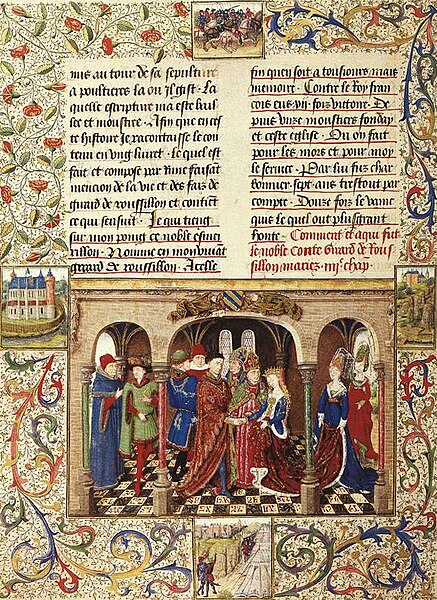 mis au tour de sa sepulture
a poultieres la ou il gist. La
quelle escripture ma este bail
lee et monstree. Afin que en ces
te histoire Je racontaisse le con
tenu en ung livret. Le quel est
fait et compose par rime faisant
mencion de la vie et des fais de
girard de roussillon et contient
ce qui sensuit. Je qui tieng
sur mon poing ce noble esme
rillon. Nomme en mon vivant
Gerard de roussillon. A celle
fin quen soit a tousiours mais
memoire. Contre le Roy fran
cois eus vij. fois victoire. De
puis unze monstiers fonday
et ceste eglise. Ou on fait
pour les mors et pour moy
le service. Par lui fus char
bonnier sept ans trestout par
compte. Douze fois le vainc
quis le quel out plus grant
honte. Comment et a qui fut
le noble Conte Girard de Rous
sillon mariez. iiij. chap.